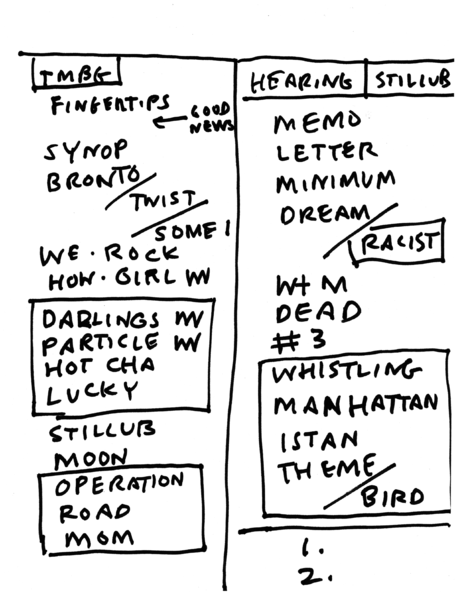 TMBG
FINGERTIPS
← GOOD
NEWS
SYNOP
BRONTO
/ TWIST
/ SOME 1
WE · ROCK
HOW · GIRL W
DARLINGS W
PARTICLE W
HOT CHA
LUCKY
STILLUB
MOON
OPERATION
ROAD
MOM
HEARING | STILLUB
MEMO
LETTER
MINIMUM
DREAM
/ RACIST
W+M
DEAD
#3
WHISTLING
MANHATTAN
ISTAN
THEME
/ BIRD
1.
2.